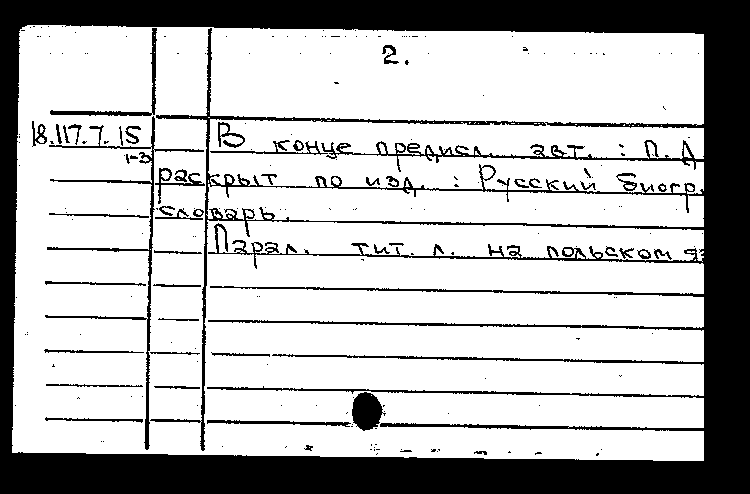 2.
18.117.7.15 В конце предисл. авт. : П. Д
1-3
раскрыт по изд. : Русский биогр.
словарь.
Парал. тит. л. на польском яз